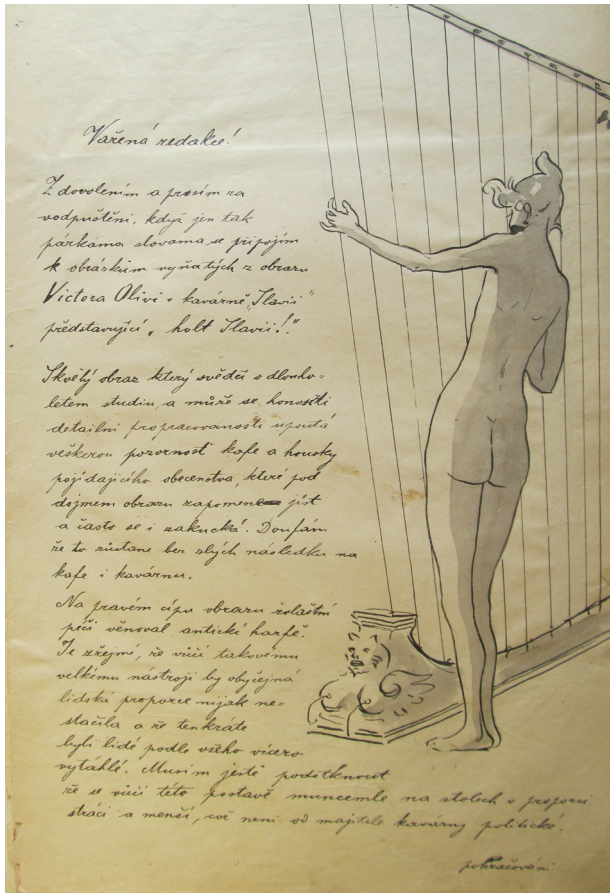 Vařená redakce!
Z dovolením a prosím za
vodpuštění, když jen tak
párkama slovama se připojím
k obrázkům vyňatých z obrazu
Victora Olivi v kavárně „Slavii"
představující „holt Slavii!"
Skvělý obraz který svědčí o dlouho=
letém studiu, a může se honositi
detailní propracovaností upoutá
veškerou pozornost kafe a housky
pojídajícího obecenstva, které pod
dojmem obrazu zapomene jíst
a často se i zakucká. Doufám
že to zůstane bez zlých následku na
kafe i kavárnu.
Na pravém cípu obrazu zvláštní
péči věnoval antické harfě.
Je zřejmí, že vůči takovému
velkému nástroji by obyčejná
lidská proporce nijak ne=
stačila a že tenkráte
byli lidé podle všeho vícero
vytáhlé. Musím ještě podotknout
že se vůči této postavě na stolech v proporci
stráci a menší, což není od majitele kavárny politické.
pokračování